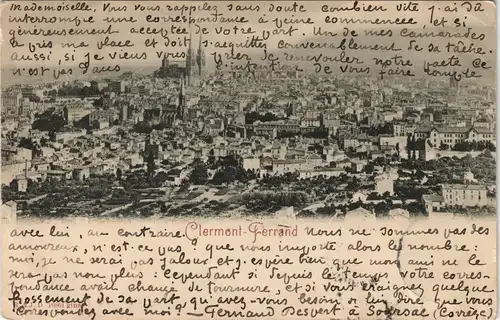 Mademoiselle, Vous vous rappelez sans doute combien vite j'ai dû
interrompre une correspondance à peine commencée et si
généreusement acceptée de votre part. Un de mes camarades
a pris ma place et doit s'acquitter convenablement de sa tâche.
Aussi si je viens vous prier de renouveler notre pacte ce
n'est pas dans l'intention de vous faire rompre
Clermont-Ferrand
avec lui, au contraire. Nous ne sommes pas des
amoureux, n'est-ce pas ? que nous importe alors le nombre :
moi, je ne serai pas jaloux et j'espère bien que mon ami ne le
sera pas non plus. Cependant si depuis le temps votre corres-
pondance avait changé de tournure, et si vous craigniez quelque
froissement de sa part, qu'avez-vous besoin de lui dire que vous
correspondez avec moi ? — Fernand Desvert à Soursac (Corrèze)